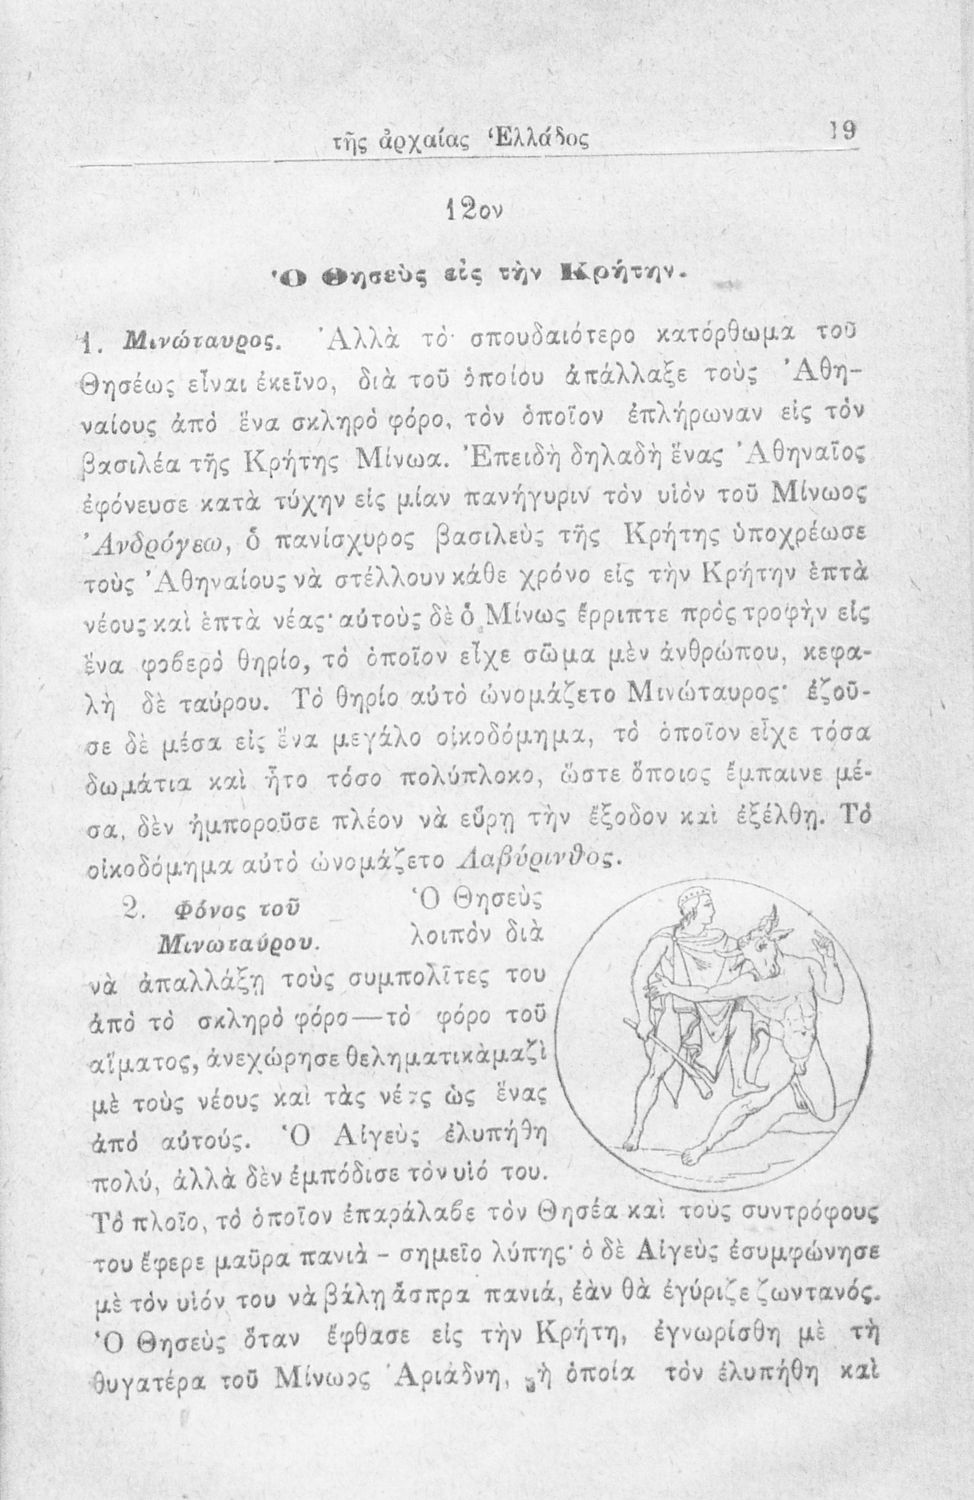 τῆς ἀρχαίας Ἑλλάδος 19
12ον
Ὁ Θησεὺς εἰς τὴν Κρήτην.
1. Μινώταυρος. Ἀλλὰ τὸ σπουδαιότερο κατόρθωμα τοῦ
Θησέως εἶναι ἐκεῖνο, διὰ τοῦ ὁποίου ἀπάλλαξε τοὺς Ἀθη-
ναίους ἀπὸ ἕνα σκληρὸ φόρο, τὸν ὁποῖον ἐπλήρωναν εἰς τὸν
βασιλέα τῆς Κρήτης Μίνωα. Ἐπειδὴ δηλαδὴ ἕνας Ἀθηναῖος
ἐφόνευσε κατὰ τύχην εἰς μίαν πανήγυριν τὸν υἱὸν τοῦ Μίνωος
Ἀνδρόγεω, ὁ πανίσχυρος βασιλεὺς τῆς Κρήτης ὑποχρέωσε
τοὺς Ἀθηναίους νὰ στέλλουν κάθε χρόνο εἰς τὴν Κρήτην ἑπτὰ
νέους καὶ ἑπτὰ νέας· αὐτοὺς δὲ ὁ Μίνως ἔρριπτε πρὸς τροφὴν εἰς
ἕνα φοβερὸ θηρίο, τὸ ὁποῖον εἶχε σῶμα μὲν ἀνθρώπου, κεφα-
λὴ δὲ ταύρου. Τὸ θηρίο αὐτὸ ὠνομάζετο Μινώταυρος· ἐζοῦ-
σε δὲ μέσα εἰς ἕνα μεγάλο οἰκοδόμημα, τὸ ὁποῖον εἶχε τόσα
δωμάτια καὶ ἦτο τόσο πολύπλοκο, ὥστε ὅποιος ἔμπαινε μέ-
σα, δὲν ἠμποροῦσε πλέον νὰ εὕρῃ τὴν ἔξοδον καὶ ἐξέλθῃ. Τὸ
οἰκοδόμημα αὐτὸ ὠνομάζετο Λαβύρινθος.
2. Φόνος τοῦ Ὁ Θησεὺς
Μινωταύρου. λοιπὸν διὰ
νὰ ἀπαλλάξῃ τοὺς συμπολῖτες του
ἀπὸ τὸ σκληρὸ φόρο—τὸ φόρο τοῦ
αἵματος, ἀνεχώρησε θεληματικὰ μαζὶ
μὲ τοὺς νέους καὶ τὰς νέας ὡς ἕνας
ἀπὸ αὐτούς. Ὁ Αἰγεὺς ἐλυπήθη
πολύ, ἀλλὰ δὲν ἐμπόδισε τὸν υἱό του.
Τὸ πλοῖο, τὸ ὁποῖον ἐπαράλαβε τὸν Θησέα καὶ τοὺς συντρόφους
του ἔφερε μαῦρα πανιὰ – σημεῖο λύπης· ὁ δὲ Αἰγεὺς ἐσυμφώνησε
μὲ τὸν υἱόν του νὰ βάλῃ ἄσπρα πανιά, ἐὰν θὰ ἐγύριζε ζωντανός.
Ὁ Θησεὺς ὅταν ἔφθασε εἰς τὴν Κρήτη, ἐγνωρίσθη μὲ τὴ
θυγατέρα τοῦ Μίνωος Ἀριάδνη, ἡ ὁποία τὸν ἐλυπήθη καὶ